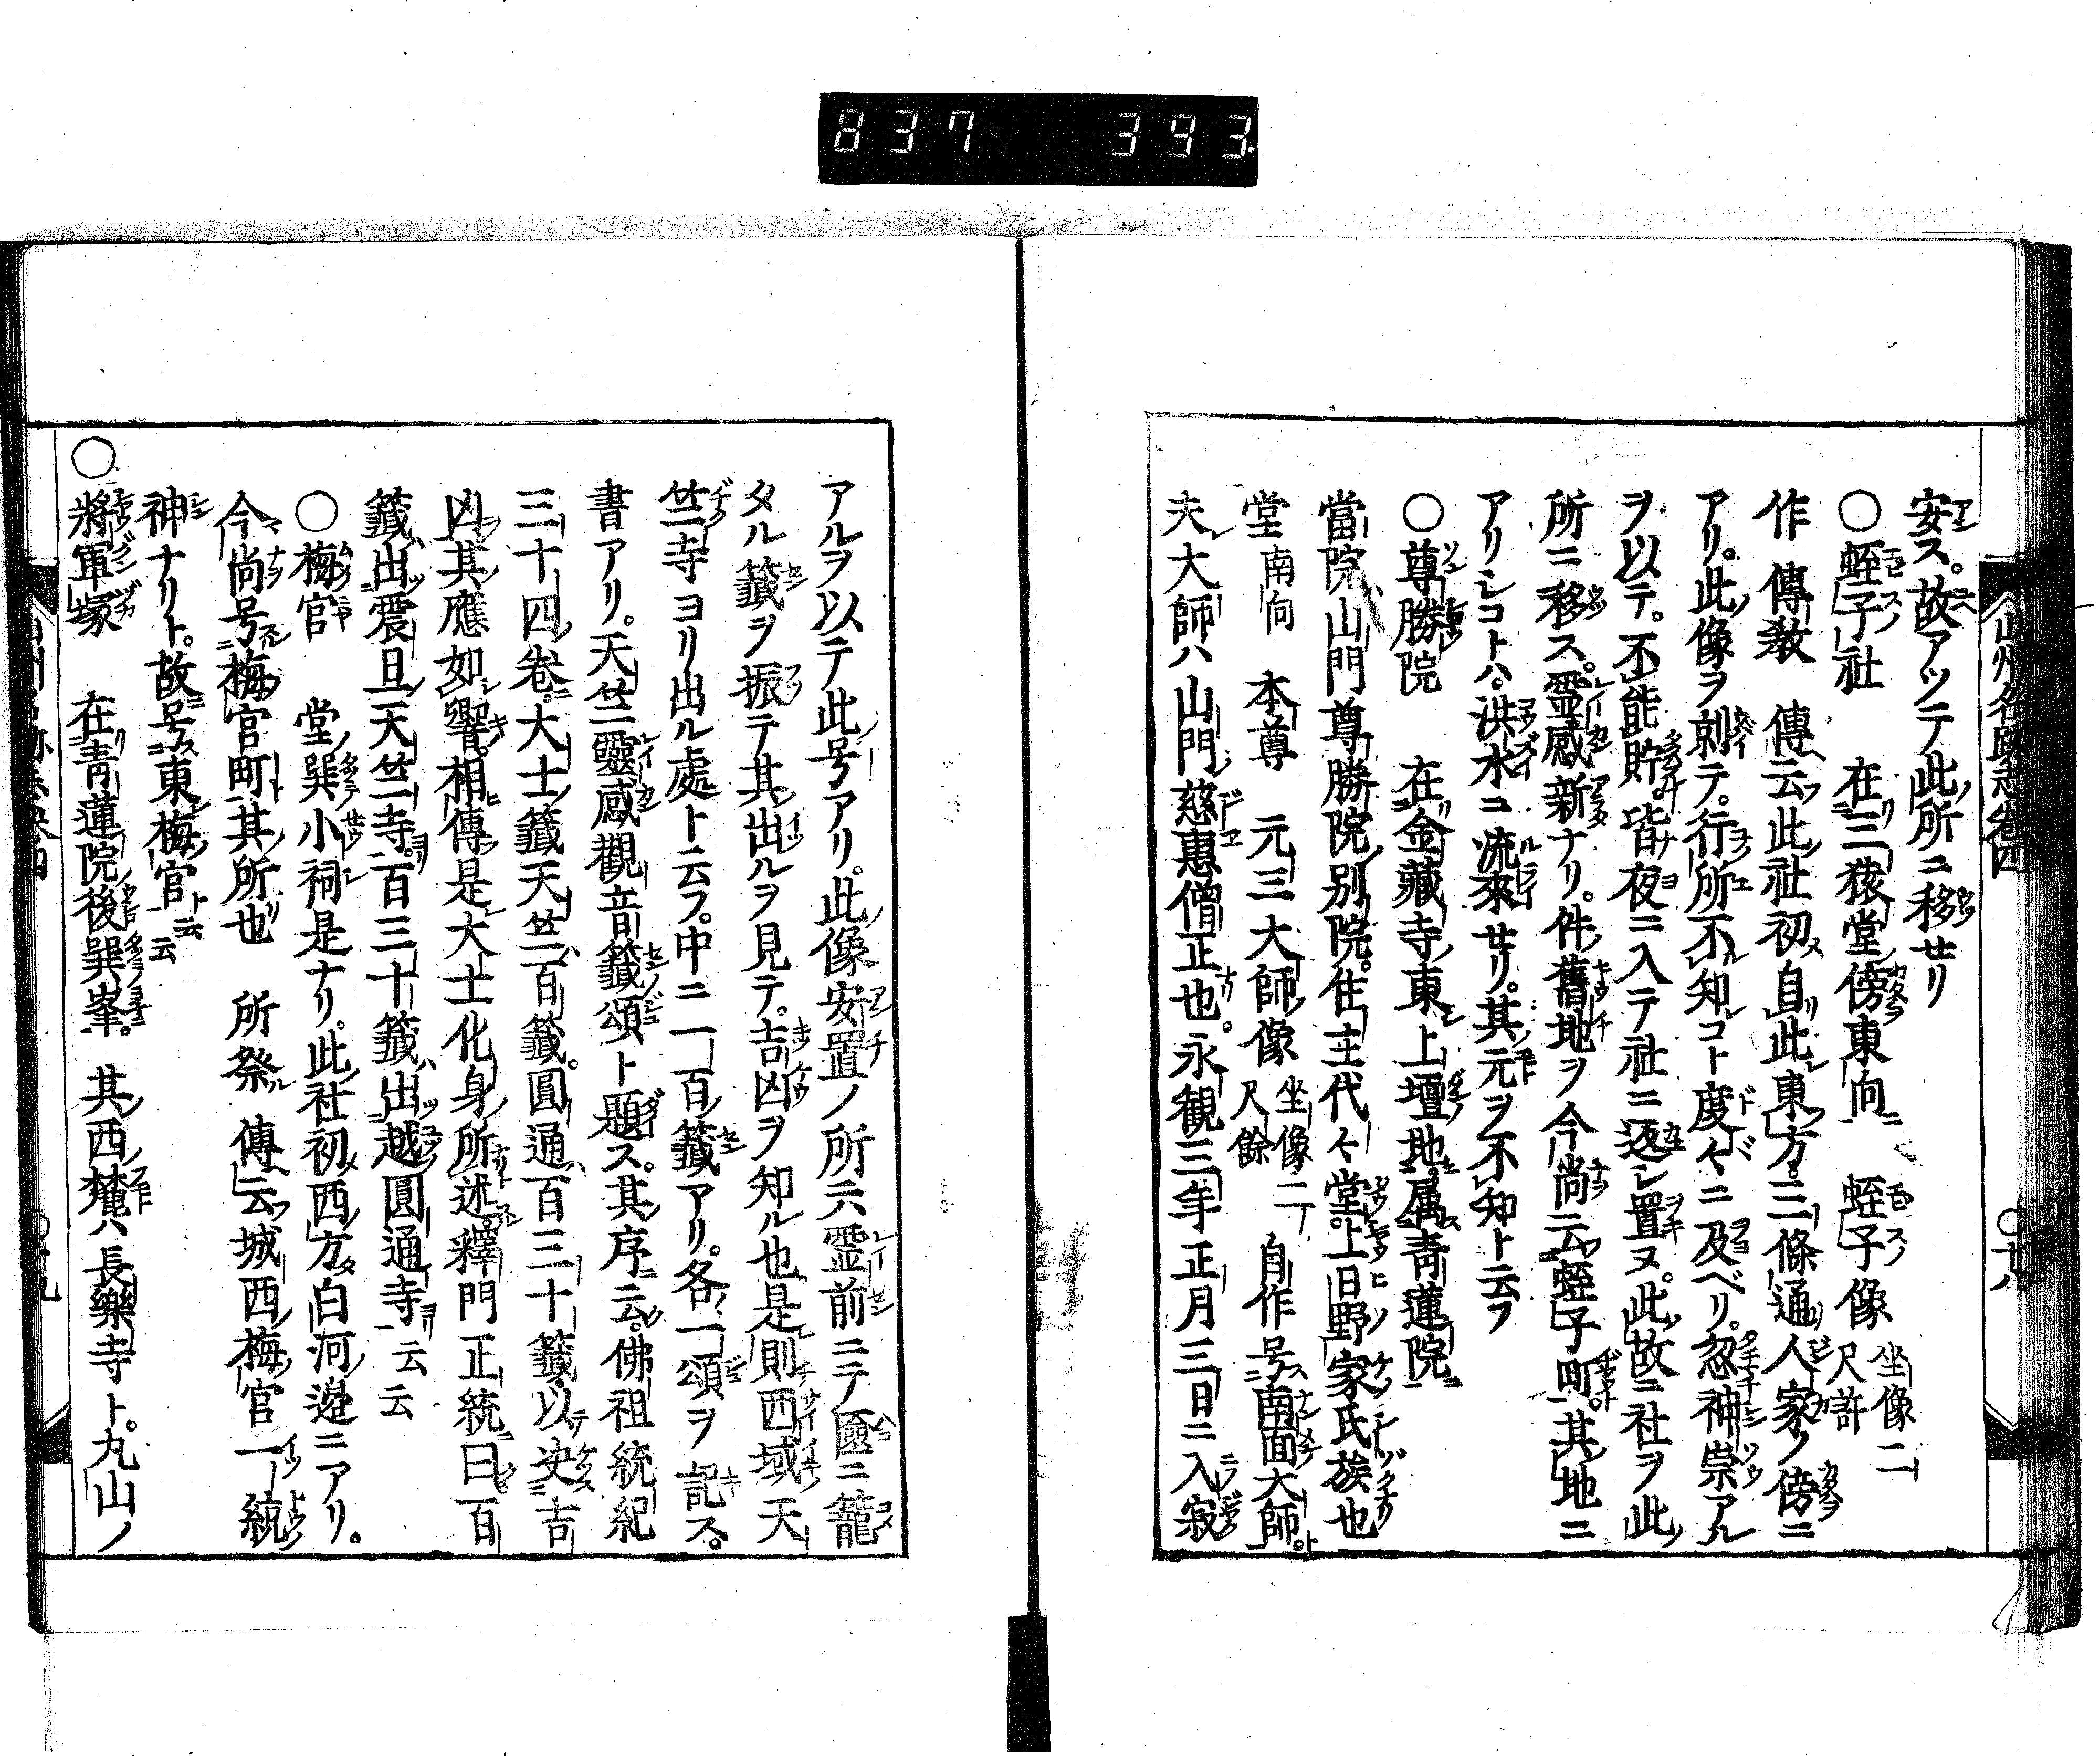 837 393.
山州名跡志卷四
安ス。故アツテ此所ニ移セリ
○蛭子社 在三猿堂傍東向 蛭子像 坐像二尺許
作 傳教 傳云此社初自此東方。三條通人家ノ傍ニ
アリ。此像ヲ刻テ。行所不知コト度々ニ及ベリ。忽神祟アル
ヲ以テ。不能貯皆夜ニ入テ社ニ返シ置ヌ。此故ニ社ヲ此
所ニ移ス。霊感新ナリ。件舊地ヲ今尚云蛭子町。其地ニ
アリシコトハ。洪水ニ流來セリ。其元ヲ不知ト云フ
○尊勝院 在金藏寺東上壇地。属青蓮院
當院山門尊勝院別院。住主代々堂上日野家氏族也
堂 南向 本尊 元三大師像 坐像二尺餘 自作 号南面大師。
夫大師ハ山門慈惠僧正也。永観三年正月三日ニ入寂
アルヲ以テ此号アリ。此像安置ノ所六霊前ニテ匳ニ籠
タル籤ヲ振テ其出ルヲ見テ。吉凶ヲ知ル也是則西域天
竺寺ヨリ出ル處ト云フ。中ニ一百籤アリ。各一頌ヲ記ス。
書アリ。天竺靈感觀音籤頌ト題ス。其序ニ云。佛祖統紀
三十四卷。大士籤天竺百籤。圓通百三十籤以决吉
凶其應如響。相傳是大士化身所述釋門正統曰百
籤出震旦天竺寺。百三十籤出越圓通寺云云
○梅宮 堂巽小祠是ナリ。此社初西方白河邉ニアリ。
今尚号梅宮町其所也 所祭 傳云城西梅宮一統
神ナリト。故号東梅宮云
○將軍塚 在青蓮院後巽峯。其西麓ハ長樂寺ト。丸山ノ